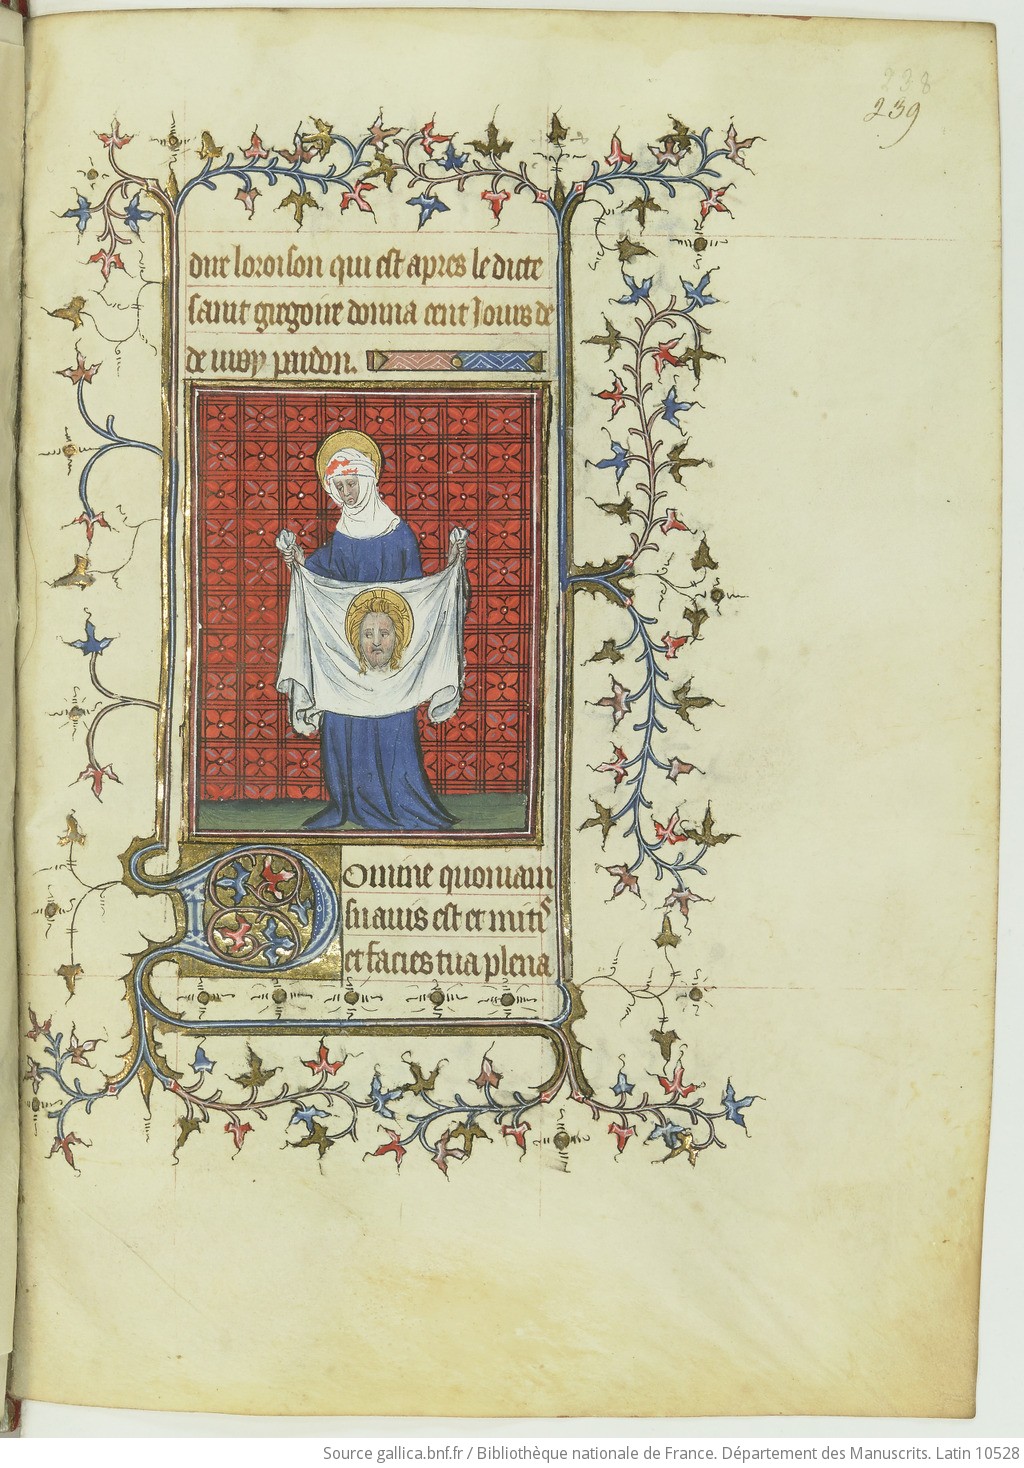 238
239
dire loroison qui est apres le dicte
saint gregoire donna cent Jours de
de vray pardon.
Domine quoniam
suavis est et mitis
et facies tua plena
Source gallica.bnf.fr / Bibliothèque nationale de France. Département des Manuscrits. Latin 10528